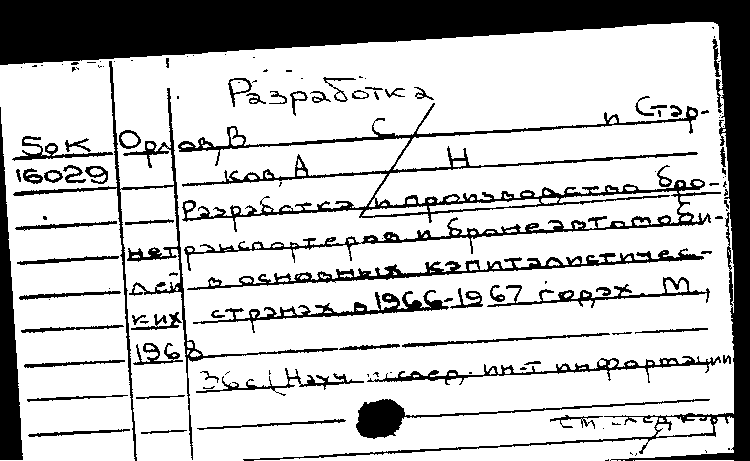 Разработка
Бок Орлов, В С и Стар-
16029 ков, А Н
Разработка и производство бро-
нетранспортеров и бронеавтомоби-
лей в основных капиталистичес-
ких странах в 1966-1967 годах. М.,
1968
36с (Науч. исслед. ин-т информации
См. след карт